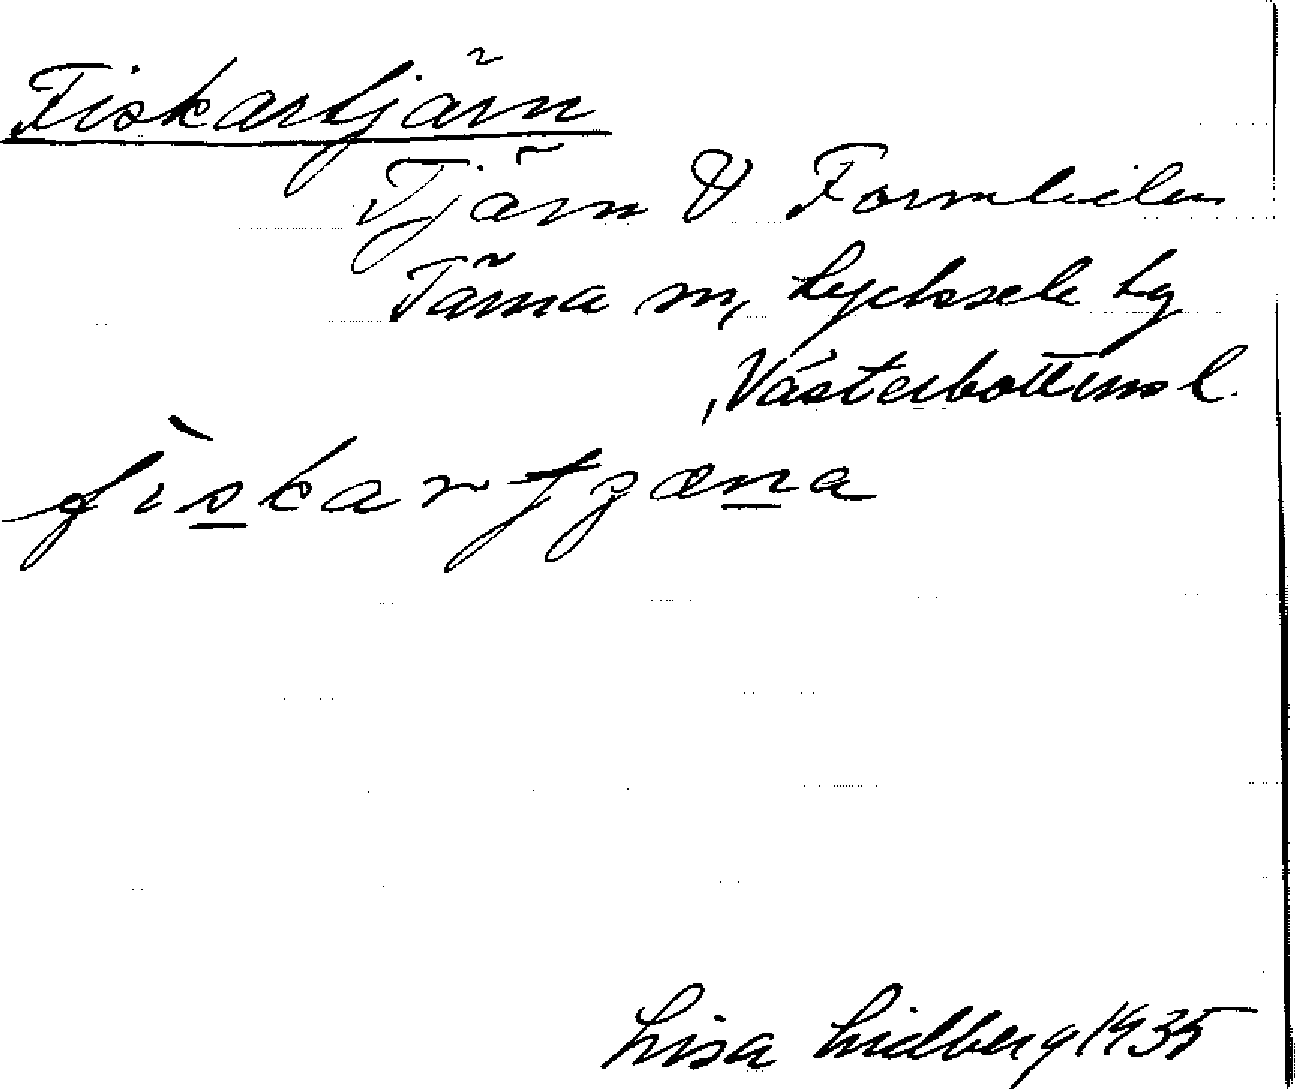 Fiskartjärn
Tjärn V Formliden
Tärna sn, Lycksele lg
Västerbottens l.
fìskartjæna
Lisa Lidberg 1935